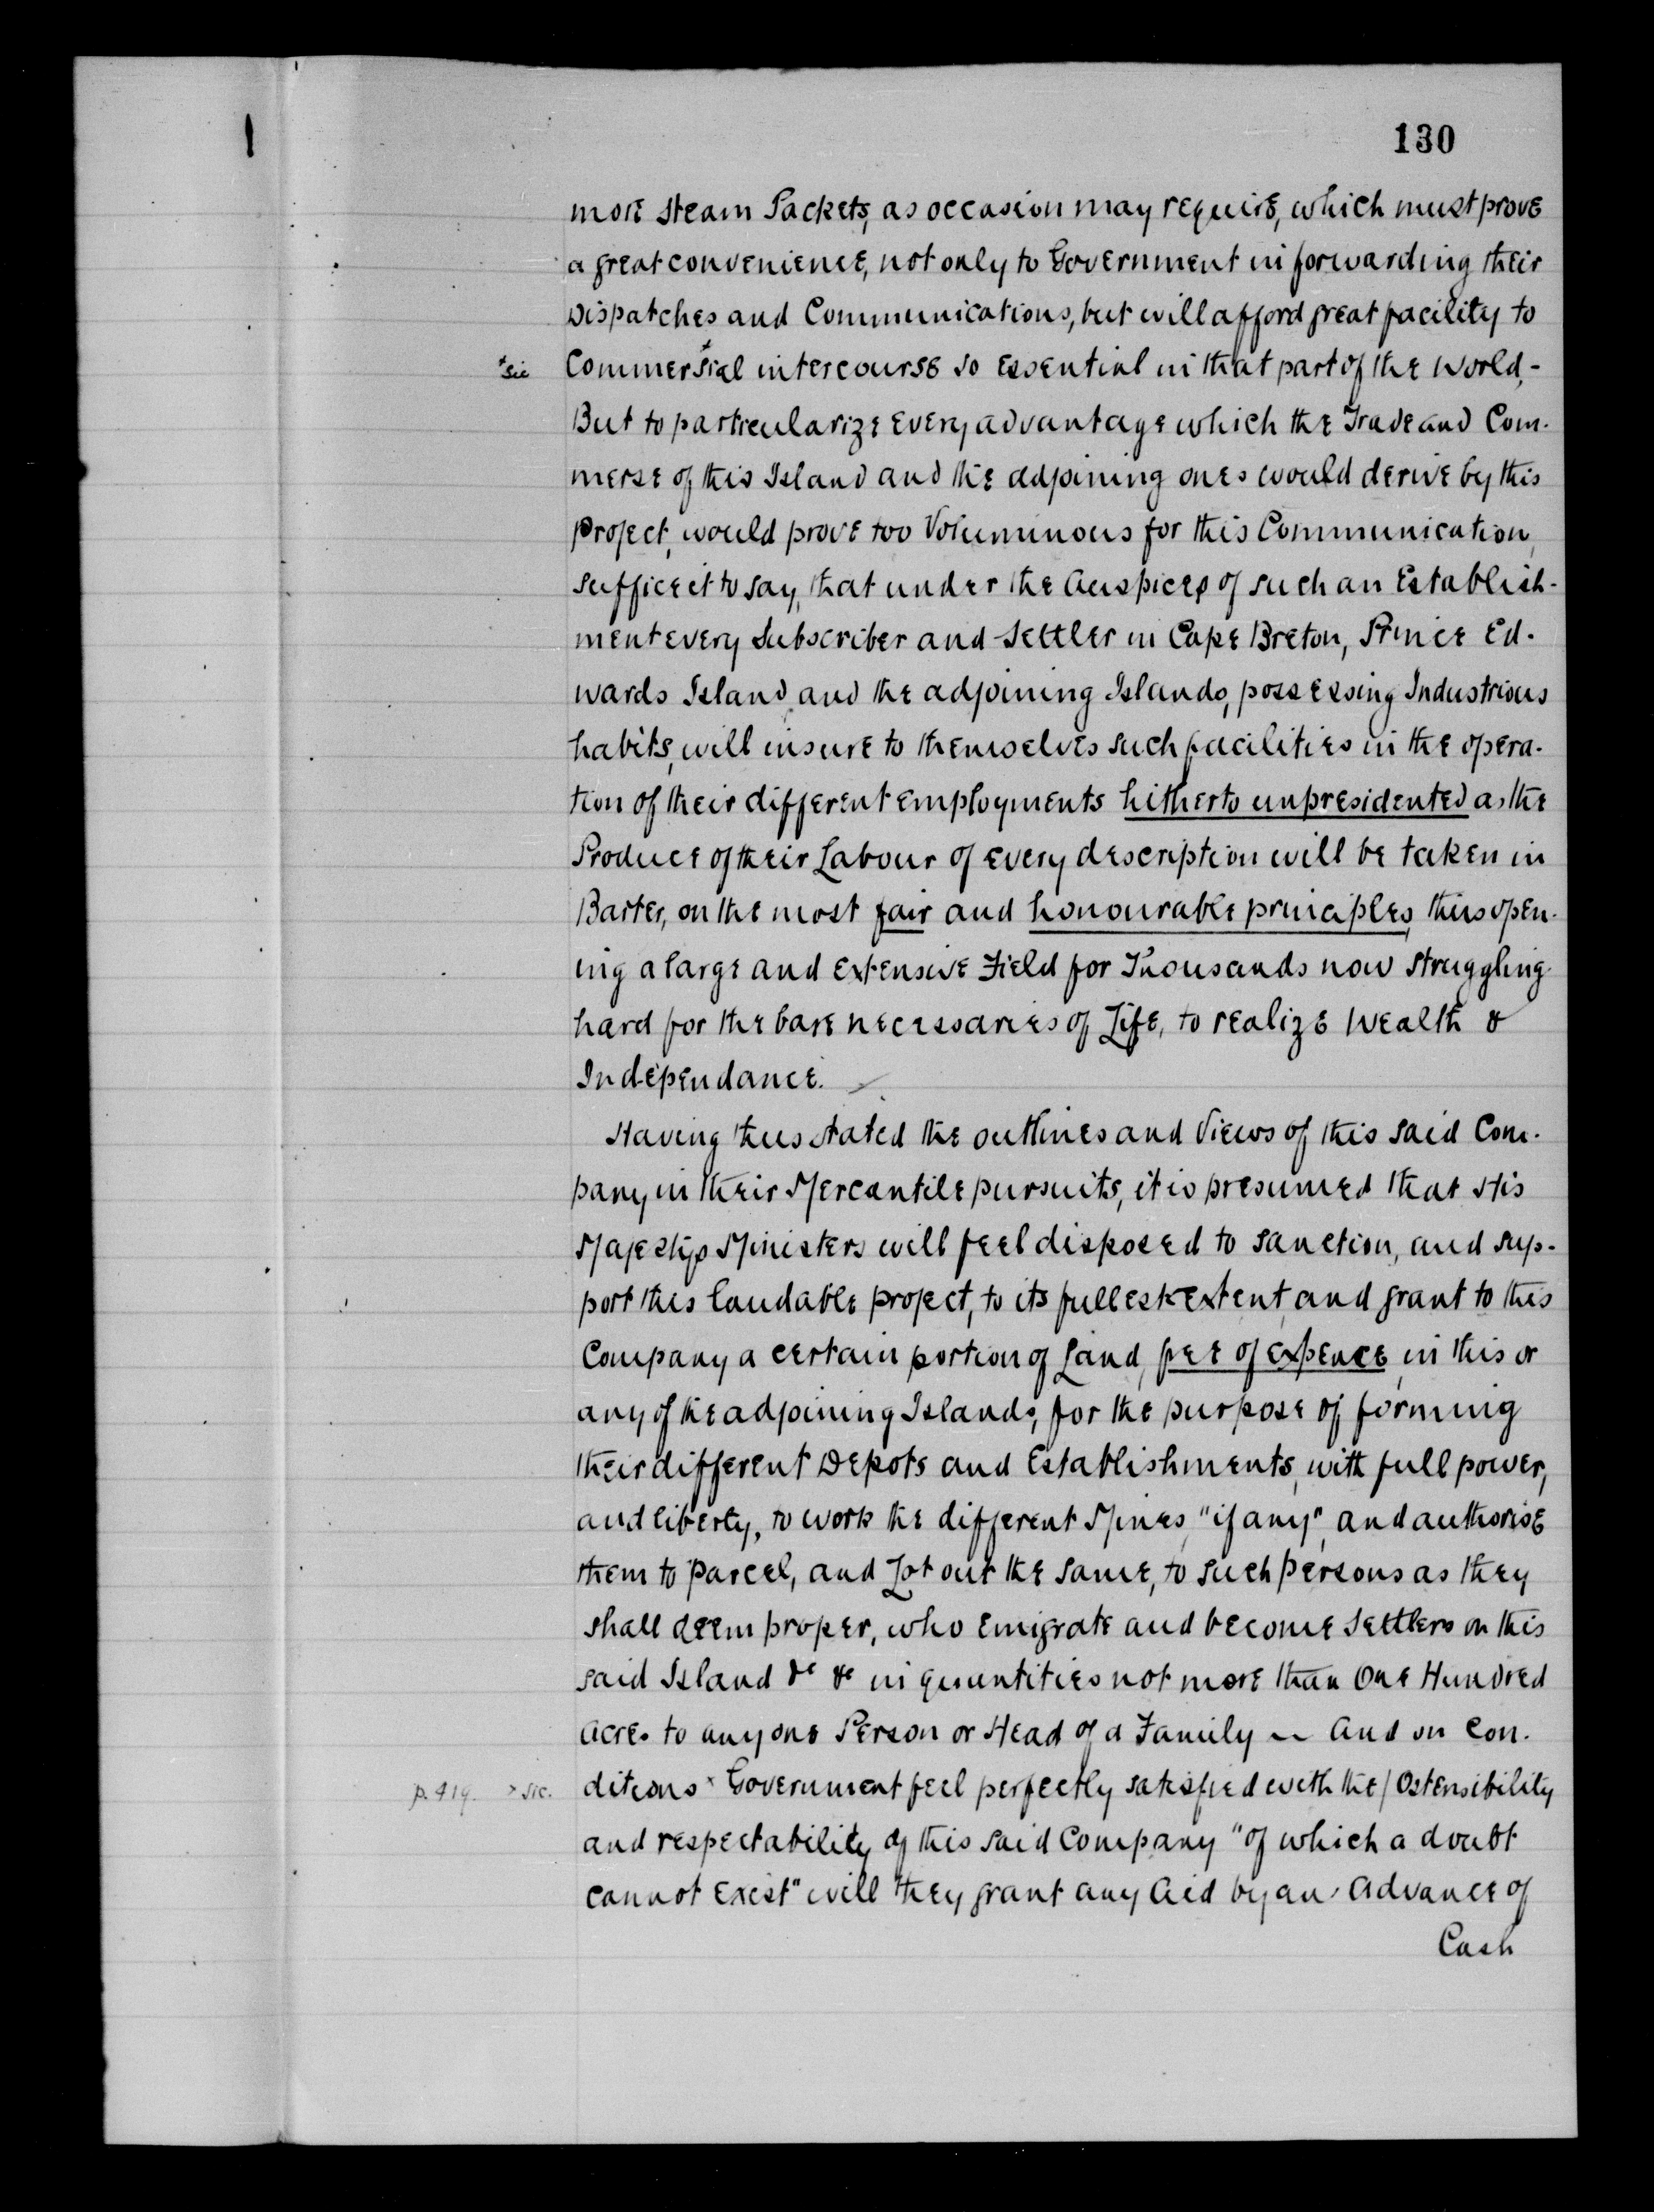 130
more steam Packets, as occasion may require, which must prove
a great convenience, not only to Government in forwarding their
Dispatches and Communications, but will afford great facility to
*sic Commer*sial intercourse so essential in that part of the World,-
But to particularize every advantage which the Trade and Com-
merse of this Island and the adjoining ones would derive by this
Project, would prove too Voluminous for this Communication,
suffice it to say, that under the Auspices of such an Establish-
ment every Subscriber and Settler in Cape Breton, Prince Ed-
wards Island and the adjoining Islands, possessing Industrious
habits, will insure to themselves such facilities in the opera-
tion of their different employments hitherto unpresidented as the
Produce of their Labour of every description will be taken in
Barter, on the most fair and honourable principles, thus open-
ing a large and extensive Field for Thousands now struggling
hard for the bare necessaries of Life, to realize Wealth &
Independance.
Having thus stated the outlines and Views of this said Com-
pany in their Mercantile pursuits, it is presumed that His
Majestys Ministers will feel disposed to sanction, and sup-
port this laudable project, to its fullest extent, and grant to this
Company a certain portion of Land, free of expence, in this or
any of the adjoining Islands, for the purpose of forming
their different Depots and Establishments, with full power,
and liberty, to work the different Mines, "if any", and authorise
them to parcel, and Lot out the same, to such persons as they
shall deem proper, who emigrate and become settlers on this
said Island &c &c in quantities not more than One Hundred
acres to any one Person or Head of a Family ~ And on con-
p. 419. × sic. ditions × Government feel perfectly satisfied with the / Ostensibility
and respectability of this said Company "of which a doubt
cannot exist" will they grant any Aid by an Advance of
Cash